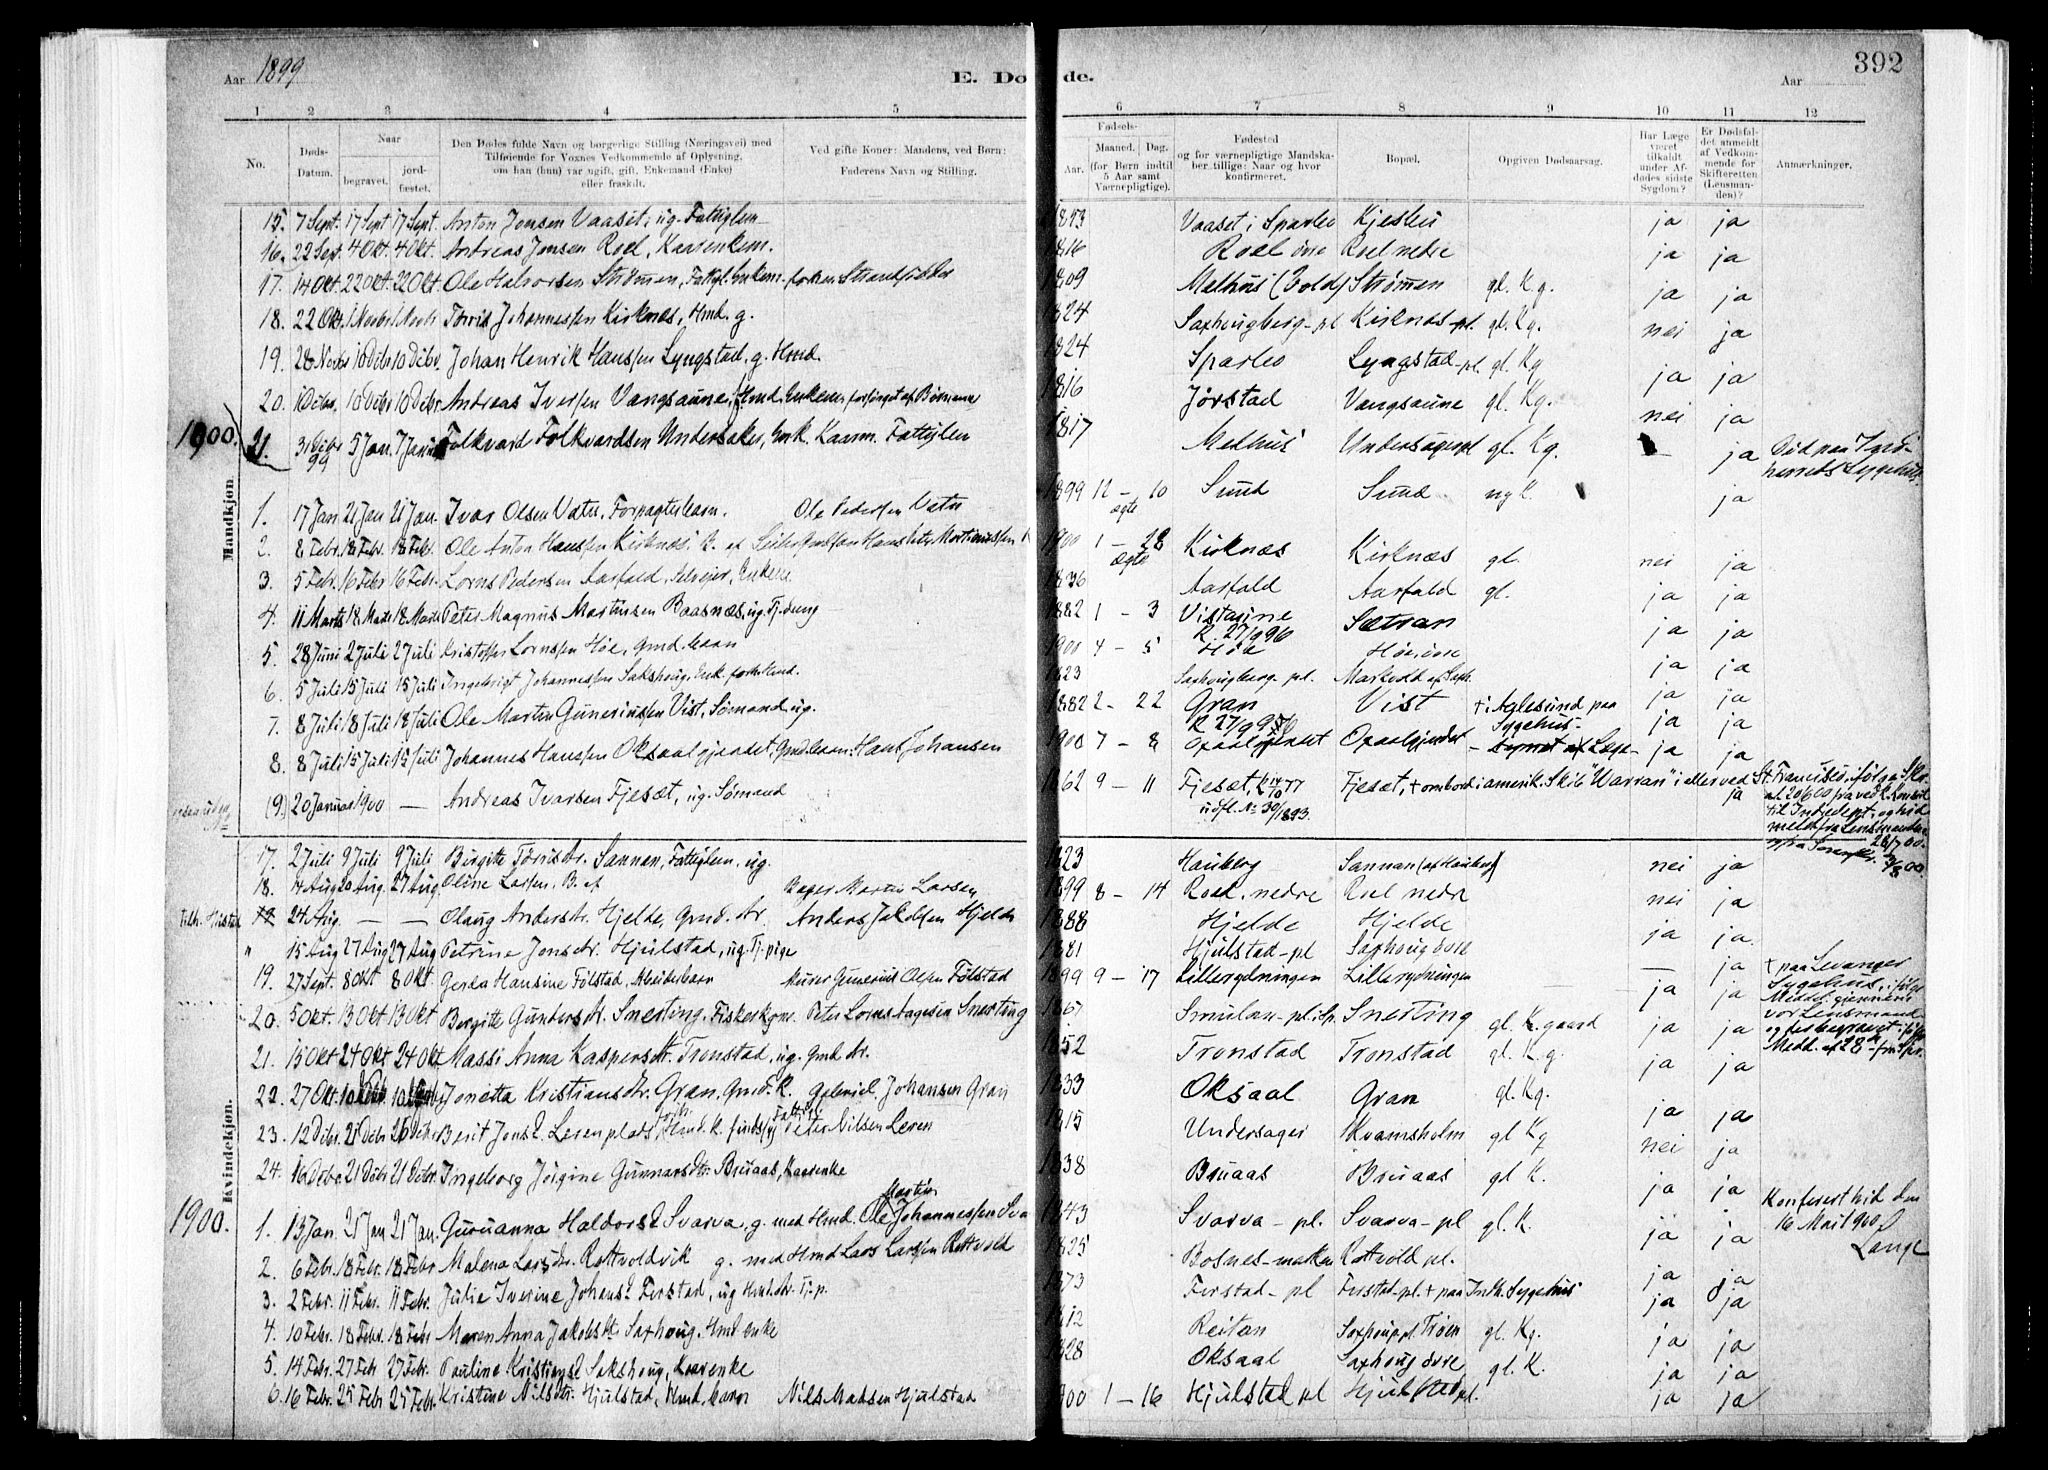 Aar 1899 E. Dø de. Aar 392
1 2 3 4 5 6 7 8 9 10 11 12
No. Døds-Datum. Naar begravet. jordfæstet. Den Dødes fulde Navn og borgerlige Stilling (Næringsvei) med Tilføiende for Voxnes Vedkommende af Oplysning, om han (hun) var ugift, gift, Enkemand (Enke) eller fraskilt. Ved gifte Koner: Mandens, ved Børn: Faderens Navn og Stilling. Fødsels- Aar. Maaned. Dag. (for Børn indtil 5 Aar samt Værnepligtige). Fødested og for værnepligtige Mandskaber tillige: Naar og hvor konfirmeret. Bopæl. Opgiven Dødsaarsag. Har Læge været tilkaldt under Afdødes sidste Sygdom? Er Dødsfaldet anmeldt af Vedkommende for Skifteretten (Lensmanden)? Anmærkninger.
Mandkjøn.
15. 7 Sept. 17 Sept 17 Sept. Anton Jonsen Vaaset, ug. Fattiglem 1893 Vaaset i Sparbo ja ja
16. 22 Sept. 4 Okt. 4 Okt. Andreas Jonsen Roel, Kaarenkem. 1816 Roel øvre Roel nedre ja ja
17. 14 Okt. 22 Okt. 22 Okt. Ole Halvorsen Strømen, Fattigl. Enkem. forhen Strandsidder 1809 Melhus Strømen gl. K.g. ja ja
18. 22 Okt. 1 Novbr 1 Novbr Tørris Johannessen Kirknæs, Hmd. g. 1824 Saxhougberg-pl Kirknæs-pl. gl. Kg. nei ja
19. 28 Novbr 10 Dcbr 10 Dcbr. Johan Henrik Hanssen Lyngstad, g. Hmd. 1824 Sparbo Lyngstad-pl. gl. Kg ja ja
20. 1 Dcbr. 10 Dcbr 10 Dcbr. Andreas Iversen Vangsaune, Hmd. Enkem. forsørget af Børnene 1816 Jørstad Vangsaune gl. Kg. nei ja
1900. 21. 31 Dcbr 99 5 Jan. 7 Jan. Folkvard Folkvardsen Undersaker, Enk. Kaarm. Fattiglem 1817 Melhus gl. Kg. — ja Død paa Indherreds Sygehus.
1. 17 Jan 21 Jan 21 Jan. Ivar Olsen Vatn, Forpagterbarn. Ole Pedersen Vatn 1899 12 – 10 ægte Sund Sund ny K. ja
2. 8 Febr. 18 Febr. 18 Febr. Ole Anton Hanssen Kirknæs, 1900 1 – 28 ægte Kirknæs Kirknæs gl. nei ja
3. 5 Febr. 16 Febr 16 Febr. Lorns Pedersen Aarfald, Selveier, Enkem. 1836 Aarfald Aarfald gl. ja ja
4. 11 Marts 18 Marts 18 Marts Peter Magnus Martinsen Baasnæs, ug. Tj.dreng 1882 1 – 3 Vistaune K. 27/9 96 Sætran ja ja
5. 28 Juni 2 Juli 2 Juli Kristoffer Lornssen Høe, Gmd. barn 1900 4 – 5 Høe Høe, øvre ja ja
6. 5 Juli 15 Juli 15 Juli Ingebrigt Johannessen Sakshoug, Enk. forh. Hmd. 1823 Saxhougberg pl. ja ja
7. 8 Juli 18 Juli 18 Juli Ole Martin Gunerius­sen Vist, Sømand, ug. 1882 2 – 22 Gran K 27/9 Vist † i Aalesund paa Sygehus ja ja
8. 8 Juli 15 Juli 15 Juli Johannes Hanssen Oksaalgjerdet, Gmd. barn. Hans Johansen 1900 7 – 8 Oxaalgjerdet Oxaalgjerdet ja ja
(9.) 20 Januar 1900 — Andreas Ivarsen Fjesæt, ug. Sømand 1862 9 – 11 Fjesæt, K 14/10 77 udfl. No 30/1893. Fjesæt, † ombord i amerik. Skib "Warran" i eller ved St. Francisco, ifølge Skr. ja
Kvindekjøn.
17. 2 Juli 9 Juli 9 Juli Birgitte Tørrisdr. Sannan, Fattiglem, ug. 1823 Hauberg Sannan (af Hauberg) nei ja
18. 14 Aug 20 Aug. 27 Aug Oline Larsen, B. af Bager Martin Larsen 1899 8 – 14 Roel. nedre Roel nedre nei ja
19 24 Aug. — — Olaug Andersdr. Hjelde, Gmd. dr Anders Jakobsen Hjelde 1888 Hjelde Hjelde ja ja.
" 15 Aug 27 Aug 27 Aug Petrine Jonsdr. Hjulstad, ug. Tj. pige 1881 Hjulstad-pl Saxhoug øvre — ja † paa Levanger Sygehus,
19. 27 Sept. 8 Okt 8 Okt. Gerda Hansine Følstad, Arbeiderbarn Murer Gunerius Olsen Følstad 1899 9 – 17 Lillerydningen Lillerydningen ja ja
20. 5 Okt. 13 Okt 13 Okt Bergitte Gundersdr. Snerting. Fiskerkone. Peter Lorns Aagesen Snerting 1867 Snerting gl. K. gaard ja ja
21. 15 Okt 24 Okt 24 Okt. Massi Anna Kaspersdr. Tronstad, ug. Gmd. dr. 1852 Tronstad Tronstad gl. K. g. ja ja
22. 27 Okt. Jonetta Kristiansdr. Gran, Gmd. K. Gabriel Johansen Gran 1833 Oksaal Gran gl. Kg. ja ja
23. 12 Dcbr. 21 Dcbr 26 Dcbr. Berit Jonsd. Lerenplads, Hmd. K. Peter Nilsen Leren 1815 Undersager Kvamsholm gl Kg nei ja
24. 16 Dcbr. 21 Dcbr 21 Dcbr. Ingeborg Jørgine Gunnarsdtr. Bruaas, Kaarenke 1838 Bruaas Bruaas gl K. ja ja
1900. 1. 13 Jan. 21 Jan 21 Jan. Guruanna Haldorsd. Svarva, g. med Hmd. Ole Martin Johannessen Sva 1843 Svarva-pl. Svarva-pl gl. K. ja ja Konferert hid den 16 Mai 1900 Lange
2. 6 Febr. 18 Febr. 18 Febr Malena Larsdr. Rotvoldvik g. med Hmd Lars Larsen Rotvold 1825 Rotvold pl. ja ja
3. 2 Febr. 11 Febr. 11 Febr. Julie Iverine Johansd. Ferstad, ug Hmd. dr. Tj. p. 1873 Ferstad-pl Ferstad-pl. † paa Indh. Sygehus ja ja
4. 10 Febr. 18 Febr. 18 Febr Maren Anna Jakobsdtr. Saxhoug. Hmd enke 1812 Reitan gl. Kg. ja ja
5. 14 Febr. 27 Febr 27 Febr. Pauline Kristiansd. Sakshoug, Kaarenke 1828 Oksaal Saxhoug øvre gl. K. ja ja
6. 16 Febr. 25 Febr 25 Febr. Kristine Nilsdtr. Hjulstad, Hmd. barn Nils Madsen Hjulstad 1900 1 – 16 Hjulstad pl Hjulstad pl. ja ja